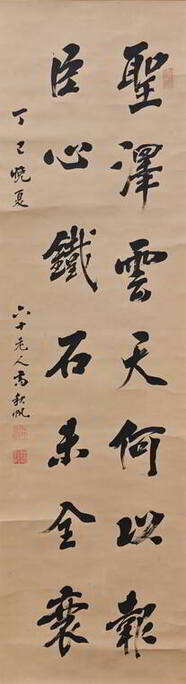 聖澤雲天何以報
臣心鐵石未全衰
丁巳晚夏 六十老人高秋帆